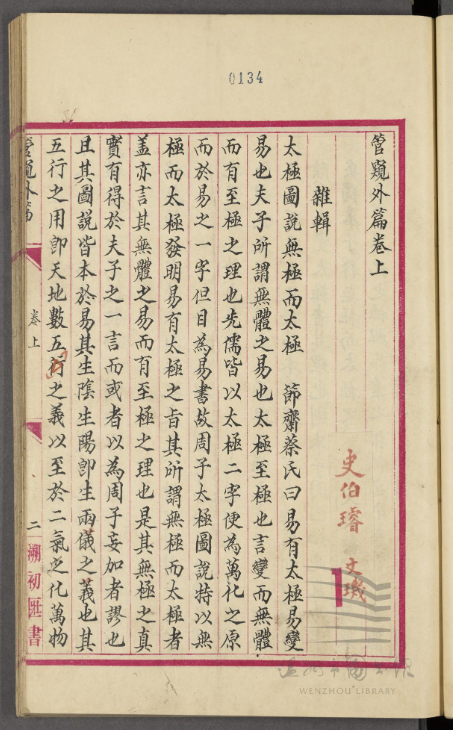 0134
管窺外篇卷上
史伯璿 文璣
雜輯
太極圖說無極而太極 節齋蔡氏曰易有太極易變
易也夫子所謂無體之易也太極至極也言變而無體
而有至極之理也先儒皆以太極二字便為萬化之原
而於易之一字但目為易書故周子太極圖說特以無
極而太極發明易有太極之旨其所謂無極而太極者
盖亦言其無體之易而有至極之理也是其無極之真
實有得於夫子之一言而或者以為周子妄加者謬也
且其圖說皆本於易其生陰生陽即生兩儀之義也其
五行之用即天地數五行之義以至於二氣之化萬物
管窺外篇
卷上
二
溯初匯書
WENZHOU LIBRARY